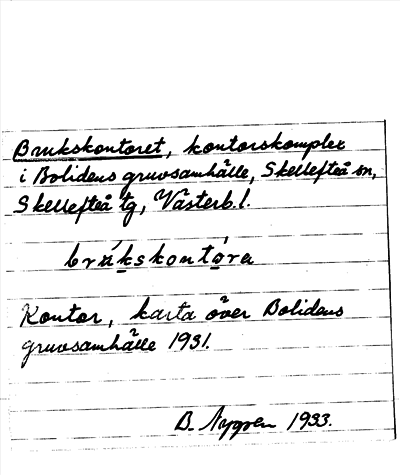 Brukskontoret, kontorskomplex
i Bolidens gruvsamhälle, Skellefteå sn,
Skellefteå tg, Västerb.l.
brúkskontóra
Kontor, karta över Bolidens
gruvsamhälle 1931.
B. Nygren 1933.